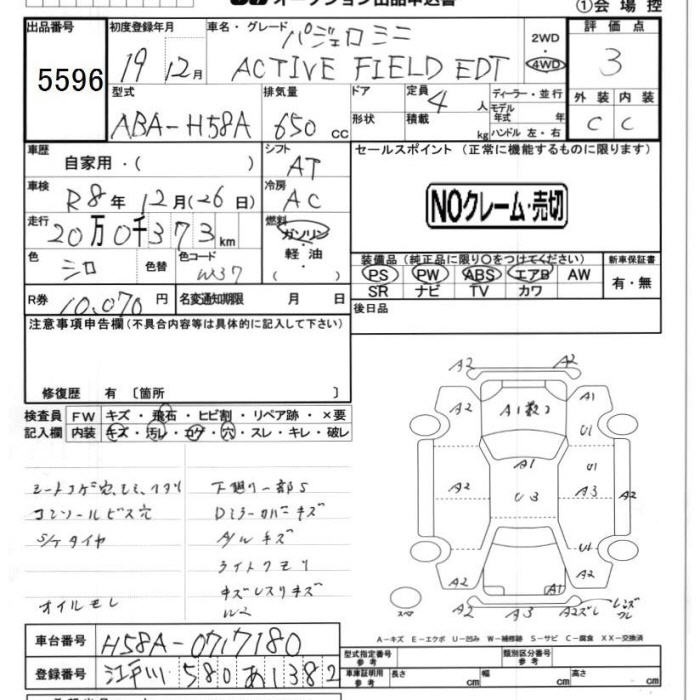 オークション出品申込書
①会場控
出品番号
5596
初度登録年月
19 12月
車名・グレード
パジェロミニ
ACTIVE FIELD EDT
2WD
・
4WD
評価点
3
外装 内装
C C
型式
ABA-H58A
排気量
650 cc
ドア
形状
定員
4 人
積載
kg
ディーラー・並行
モデル
年式 年
ハンドル 左・右
車歴
自家用・( )
シフト
AT
セールスポイント (正常に機能するものに限ります)
NOクレーム・売切
車検
R8年 12月(26日)
冷房
AC
走行
20万0千373km
燃料
ガソリン
・
軽油
( )
色
シロ
色替
色コード
W37
装備品 (純正品に限り○をつけてください)
PS PW ABS エアB AW
SR ナビ TV カワ
新車保証書
有・無
R券
10,070円
名変通知期限 月 日
後日品
注意事項申告欄(不具合内容等は具体的に記入して下さい)
修復歴 有 〔箇所 〕
検査員
記入欄
FW キズ・飛石・ヒビ割・リペア跡・×要
内装 キズ・汚レ・コゲ・穴・スレ・キレ・破レ
シートコゲ穴、シミ、ヘタリ
コンソールビス穴
S/Kタイヤ
オイルモレ
下廻リ一部S
Dミラーカバーキズ
A/Wキズ
ライトクモリ
キズレスリキズ
W2
A2 A2
A2 A1数コ A1
A1 U1
A2 U3 A3 A2
U1
A2 A1 A2
A2 A3 A2ズレ レンズワレ
スペア
A-キズ E-エクボ U-凹み W-補修跡 S-サビ C-腐食 XX-交換済
車台番号
H58A-0717180
登録番号
江戸川 580 あ 1382
型式指定番号
参考
類別区分番号
参考
車庫証明用
参考
長さ cm 幅 cm 高さ cm